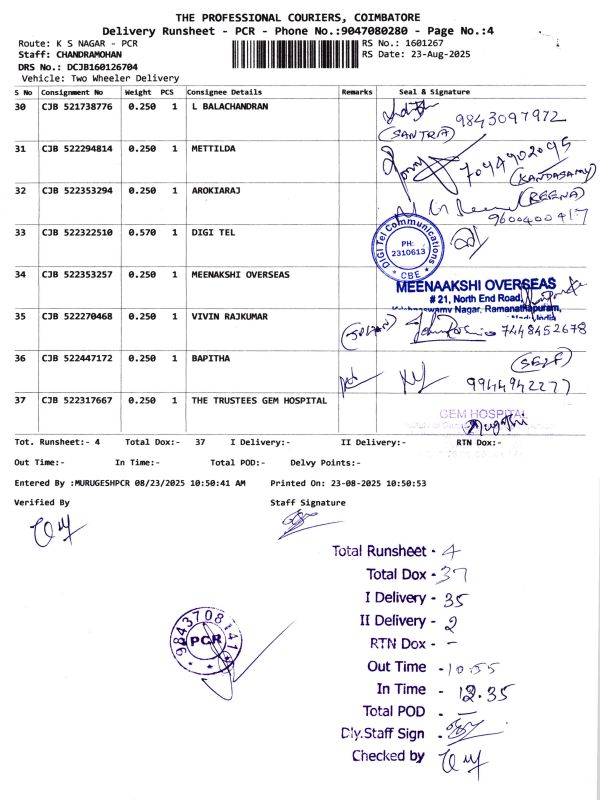 THE PROFESSIONAL COURIERS, COIMBATORE
Delivery Runsheet - PCR - Phone No.:9047080280 - Page No.:4
Route: K S NAGAR - PCR
RS No.: 1601267
Staff: CHANDRAMOHAN
RS Date: 23-Aug-2025
DRS No.: DCJB160126704
Vehicle: Two Wheeler Delivery
S No Consignment No Weight PCS Consignee Details Remarks Seal & Signature
30 CJB 521738776 0.250 1 L BALACHANDRAN
9843097972
(SANTRIA)
31 CJB 522294814 0.250 1 METTILDA
7094902095
(KANDASAMY)
32 CJB 522353294 0.250 1 AROKIARAJ
(REENA)
9600400417
33 CJB 522322510 0.570 1 DIGI TEL
DIGI Tel Communications
PH:
2310613
* CBE *
34 CJB 522353257 0.250 1 MEENAKSHI OVERSEAS
MEENAAKSHI OVERSEAS
# 21, North End Road,
Krishnaswamy Nagar, Ramanathapuram,
India
35 CJB 522270468 0.250 1 VIVIN RAJKUMAR
7448452678
36 CJB 522447172 0.250 1 BAPITHA
(SELF)
9944942277
37 CJB 522317667 0.250 1 THE TRUSTEES GEM HOSPITAL
GEM HOSPITAL
Tot. Runsheet:- 4 Total Dox:- 37 I Delivery:- II Delivery:- RTN Dox:-
Out Time:- In Time:- Total POD:- Delvy Points:-
Entered By :MURUGESHPCR 08/23/2025 10:50:41 AM Printed On: 23-08-2025 10:50:53
Verified By Staff Signature
Total Runsheet - 4
Total Dox - 37
I Delivery - 35
II Delivery - 2
RTN Dox - -
Out Time - 10.55
In Time - 12.35
Total POD -
Dly.Staff Sign -
Checked by
PCR